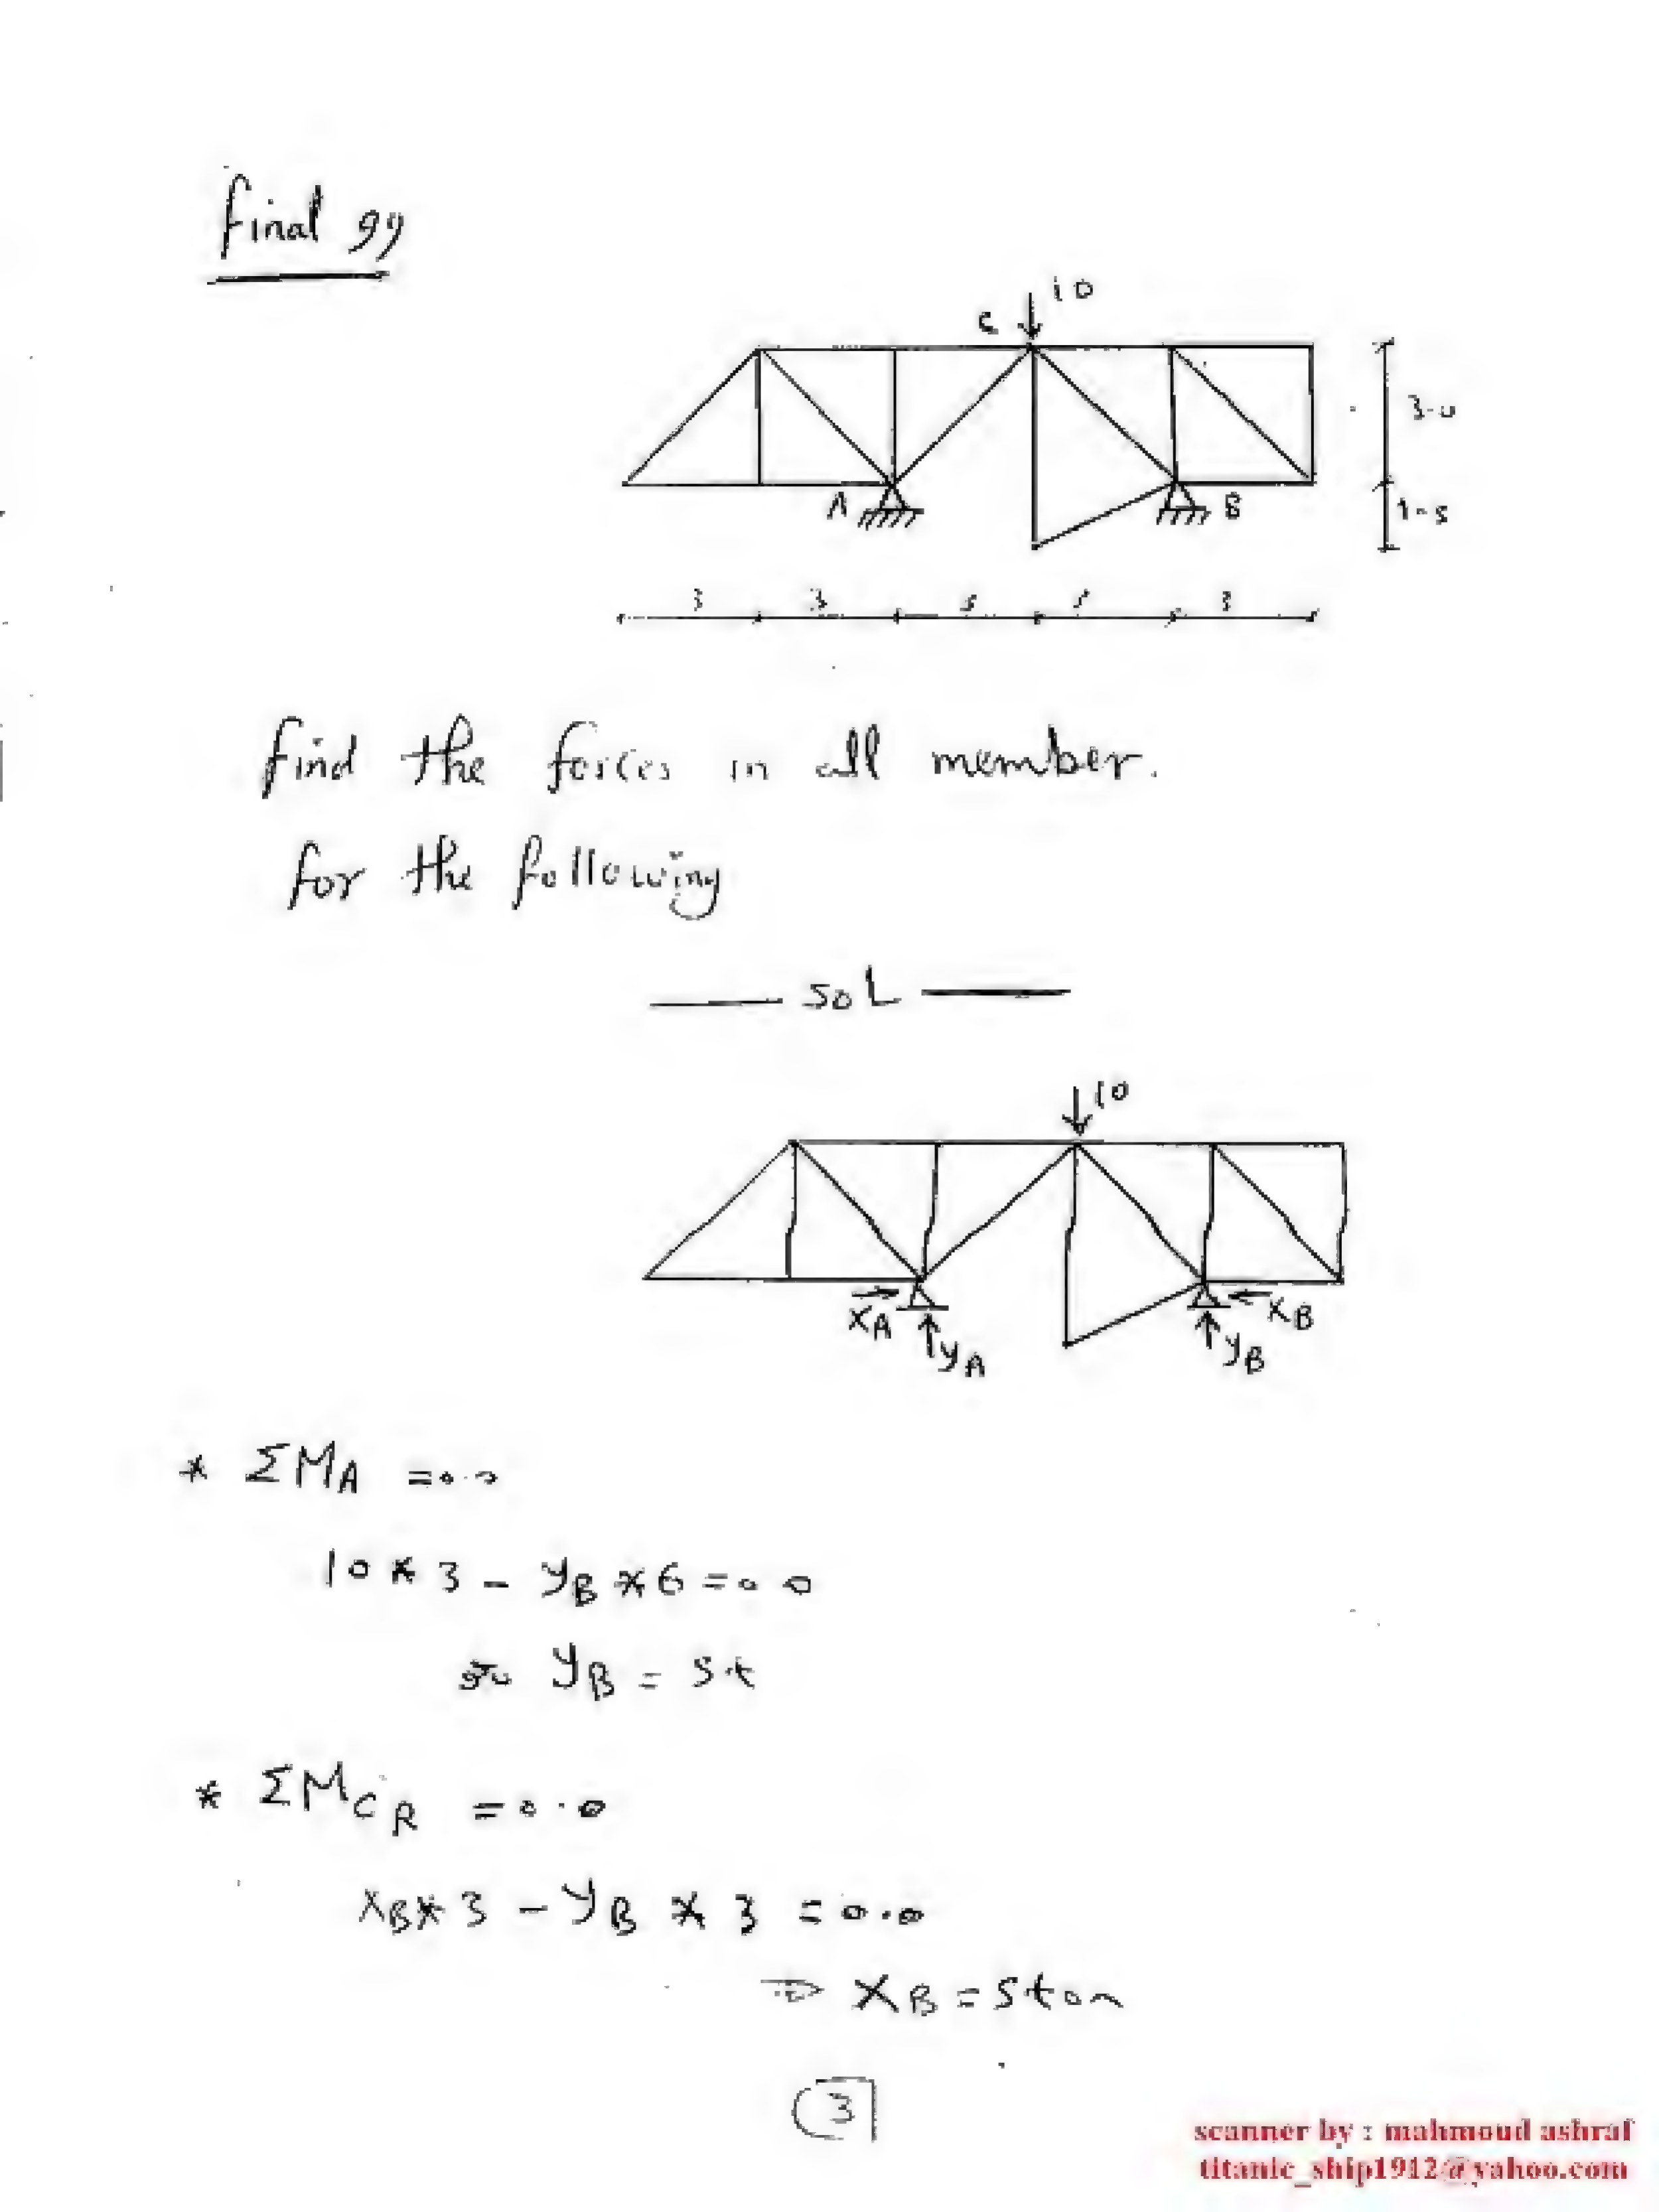 final 99
10
C
3.0
A
B
1.5
3 3 3
find the forces in all member.
for the following
SOL
10
XA
XB
yA
yB
* ΣMA = 0.0
10 * 3 - yB * 6 = 0.0
yB = 5t
* ΣMCR = 0.0
XB * 3 - yB * 3 = 0.0
⇒ XB = 5ton
3
scanner by : mahmoud ashraf
titanic_ship1912@yahoo.com